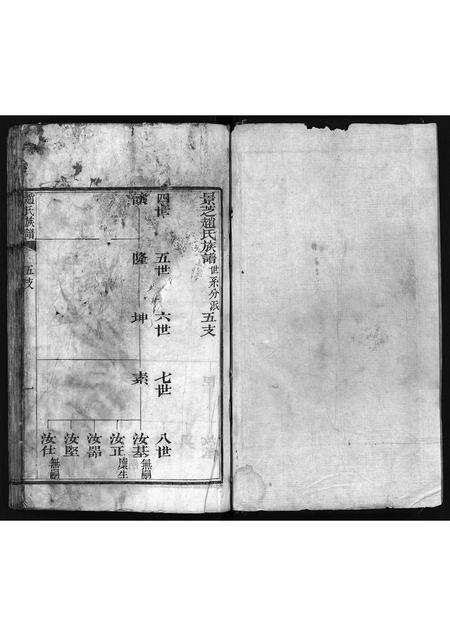 景芝趙氏族譜 世系分派 五支
四世 五世 六世 七世 八世
隆 坤 素 汝基 無嗣
汝正 廩生
汝器
汝堅
汝仕 無嗣
趙氏族譜 五支